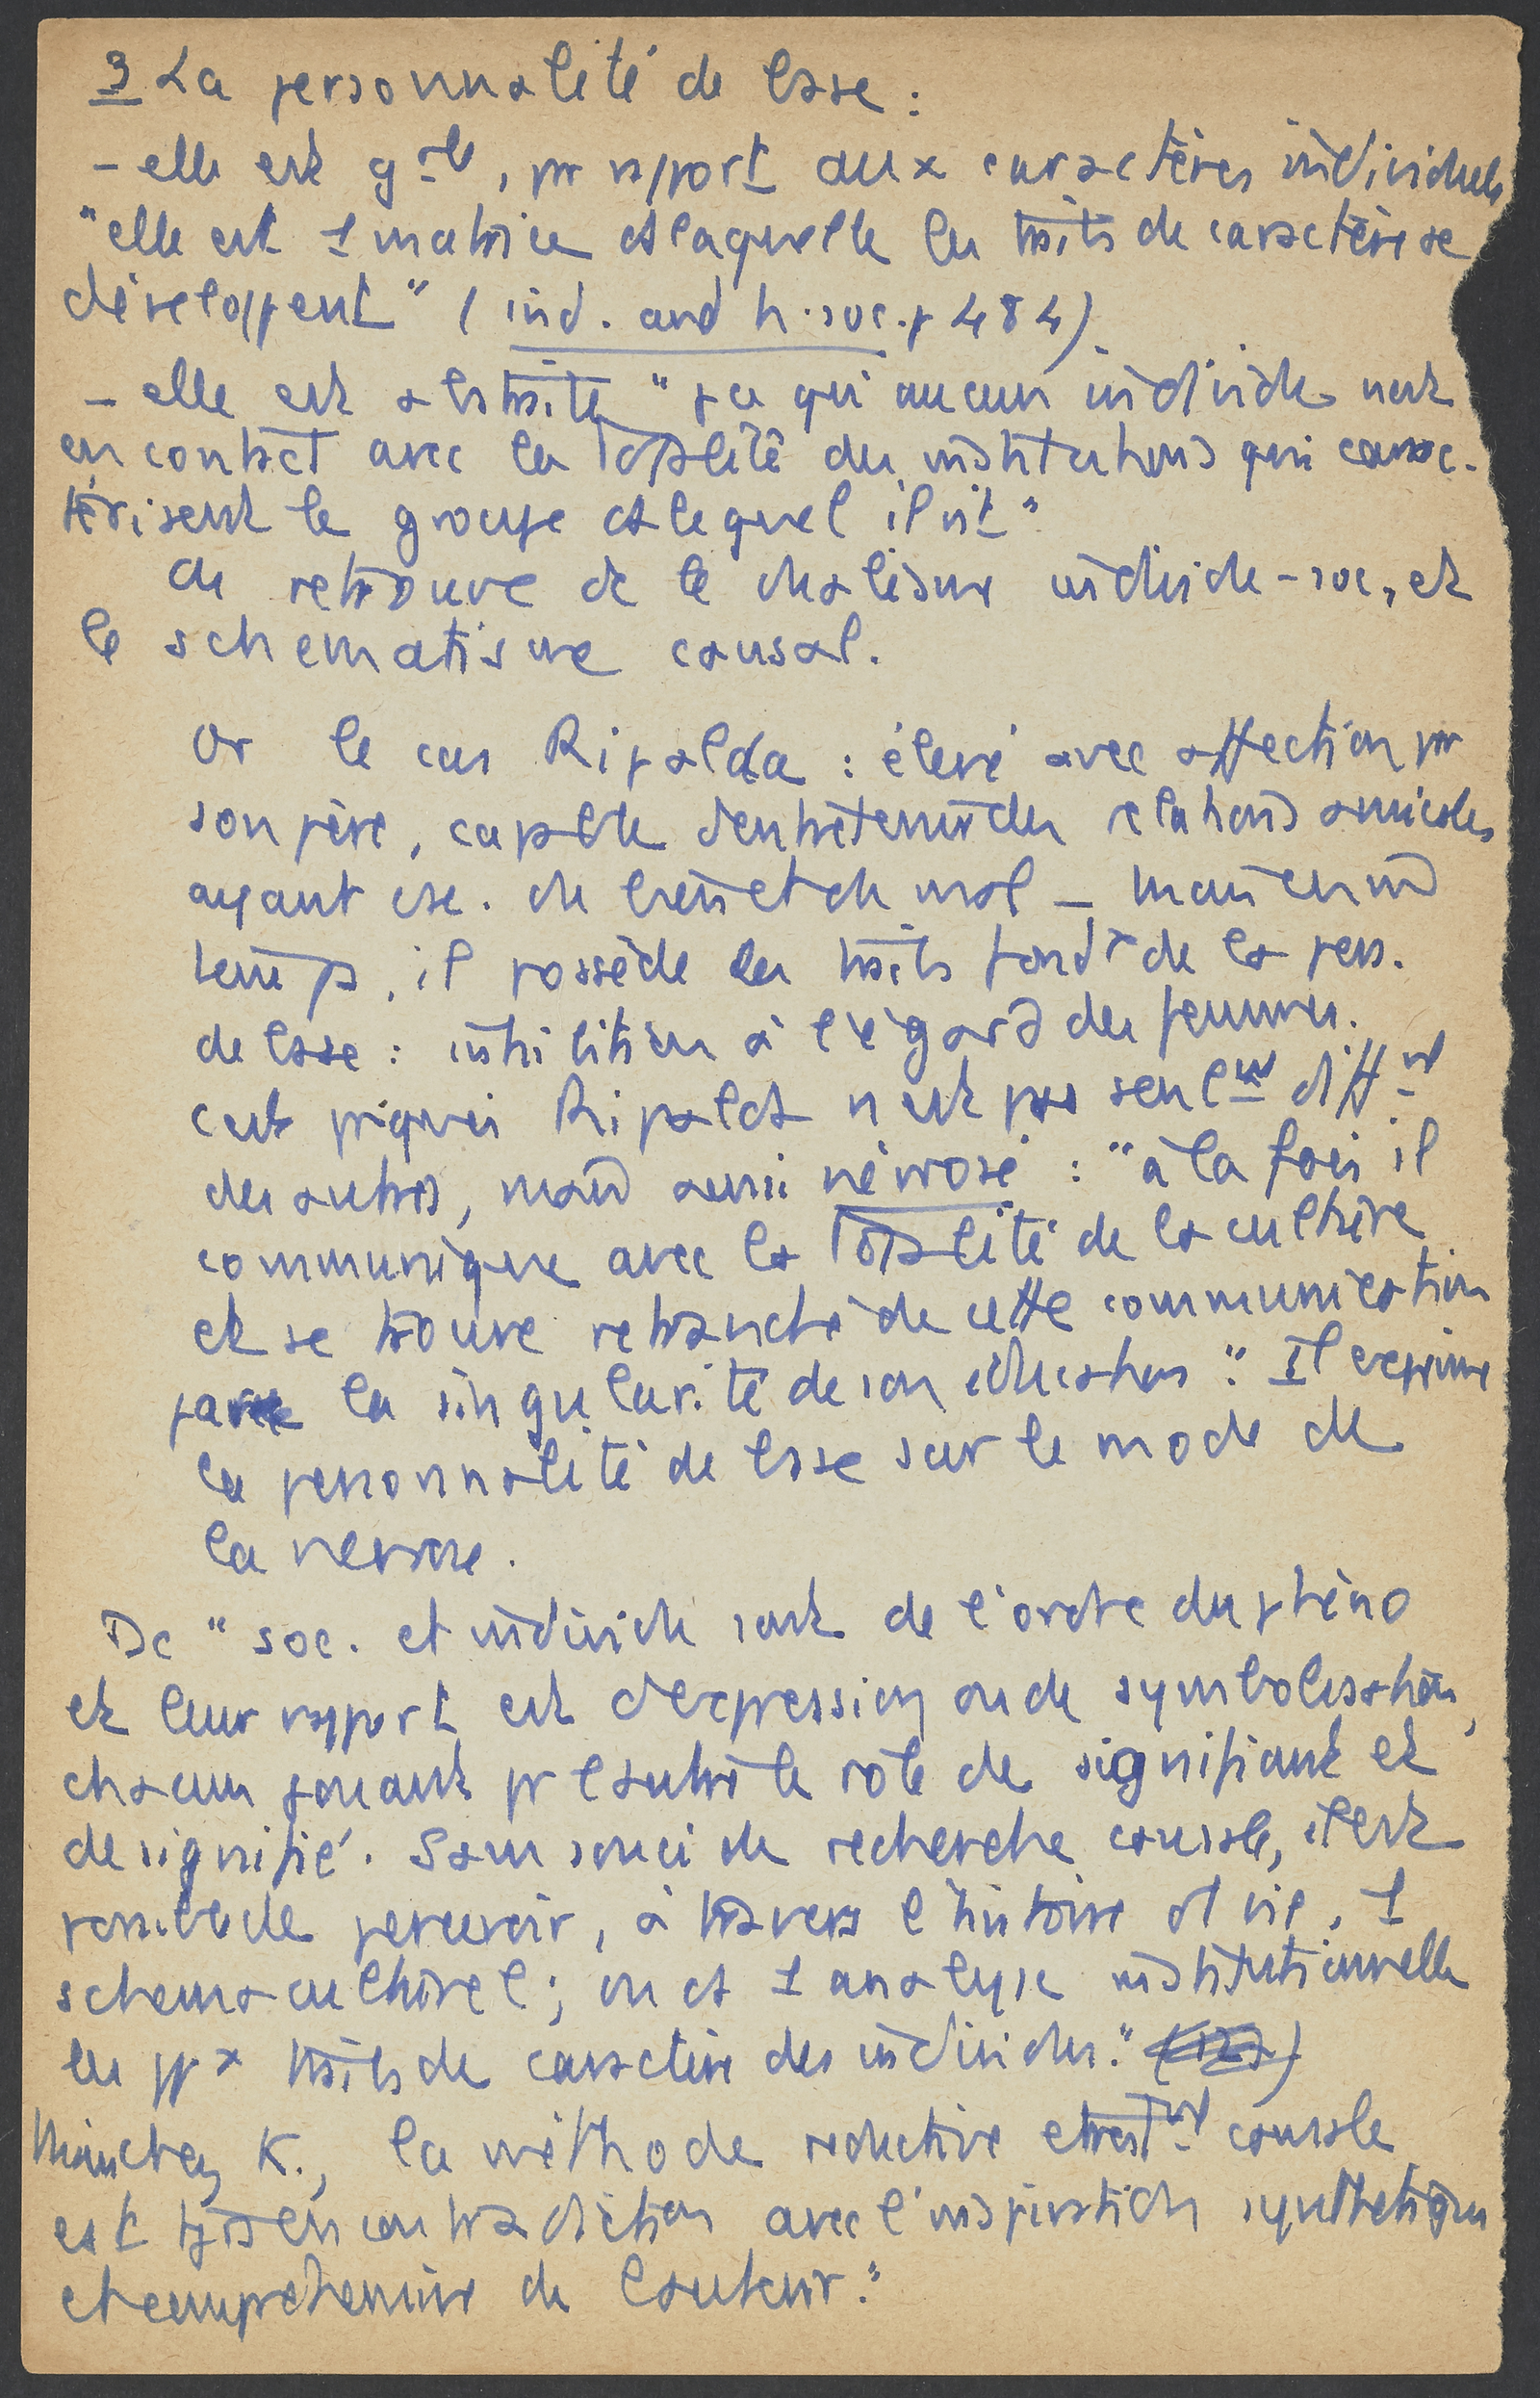 3 La personnalité de base :
– elle est gale, pr rapport aux caractères individuels
"elle est 1 matrice ds laquelle les traits de caractère se
développent" (ind. and h. soc. p 484)
– elle est abstraite "pce qu'aucun individu n'est
en contact avec la totalité des institutions qui carac-
térisent le groupe ds lequel il vit"
On retrouve dc le dualisme individu-soc, et
le schématisme causal.
Or le cas Ripalda : élevé avec affection par
son père, capable d'entretenir des relations amicales
ayant csc. du bien et du mal – mais en md
temps, il possède les traits fondx de la pers.
de base : inhibition à l'égard des femmes.
C'est pquoi Ripalda n'est pas seult difft
des autres, mais aussi névrosé : "à la fois il
communique avec la totalité de la culture
et se trouve retranché de cette communication
par la singularité de son éducation". Il exprime
la personnalité de base sur le mode de
la névrose.
Dc "soc. et individu sont de l'ordre du phéno
et leur rapport est d'expression ou de symbolisation,
chacun jouant pr l'autre le rôle de signifiant et
de signifié. Sans souci de recherche causale, il est
possible de percevoir, à travers l'histoire d'1 vie, 1
schema culturel ; ou ds 1 analyse institutionnelle
les ppx traits de caractère des individus."
Mais chez K., la méthode réductive et causale
est tjrs en contradiction avec l'inspiration synthétique
et compréhensive de l'auteur."